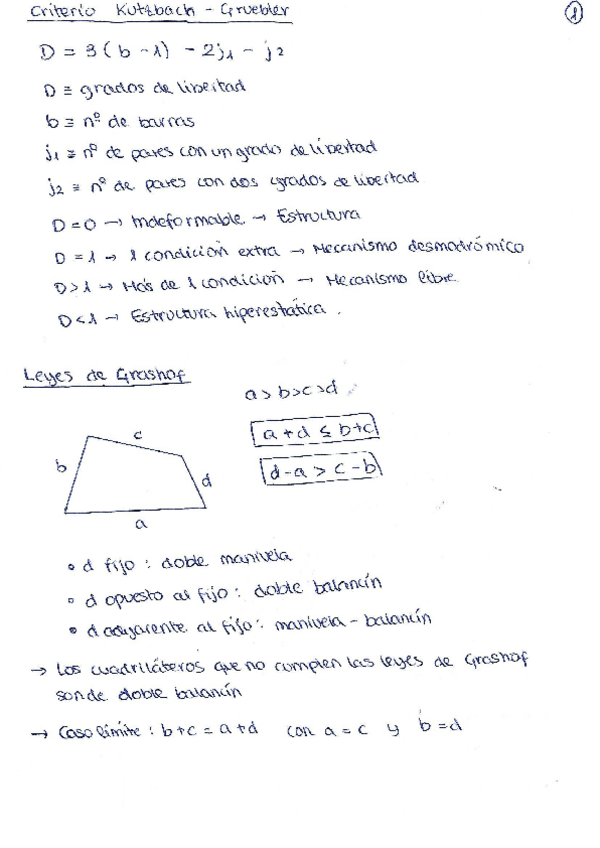 Criterio Kutzbach - Gruebler
1
D = 3(b - 1) - 2j₁ - j₂
D ≡ grados de libertad
b ≡ nº de barras
j₁ ≡ nº de pares con un grado de libertad
j₂ ≡ nº de pares con dos grados de libertad
D = 0 → Indeformable → Estructura
D = 1 → 1 condición extra → Mecanismo desmodrómico
D > 1 → Más de 1 condición → Mecanismo libre
D < 1 → Estructura hiperestática.
Leyes de Grashof
a > b > c > d
a + d ≤ b + c
d - a > c - b
c
b
d
a
• d fijo: doble manivela
• d opuesto al fijo: doble balancín
• d adyacente al fijo: manivela - balancín
→ Los cuadriláteros que no cumplen las leyes de Grashof
son de doble balancín
→ Caso límite: b + c = a + d con a = c y b = d